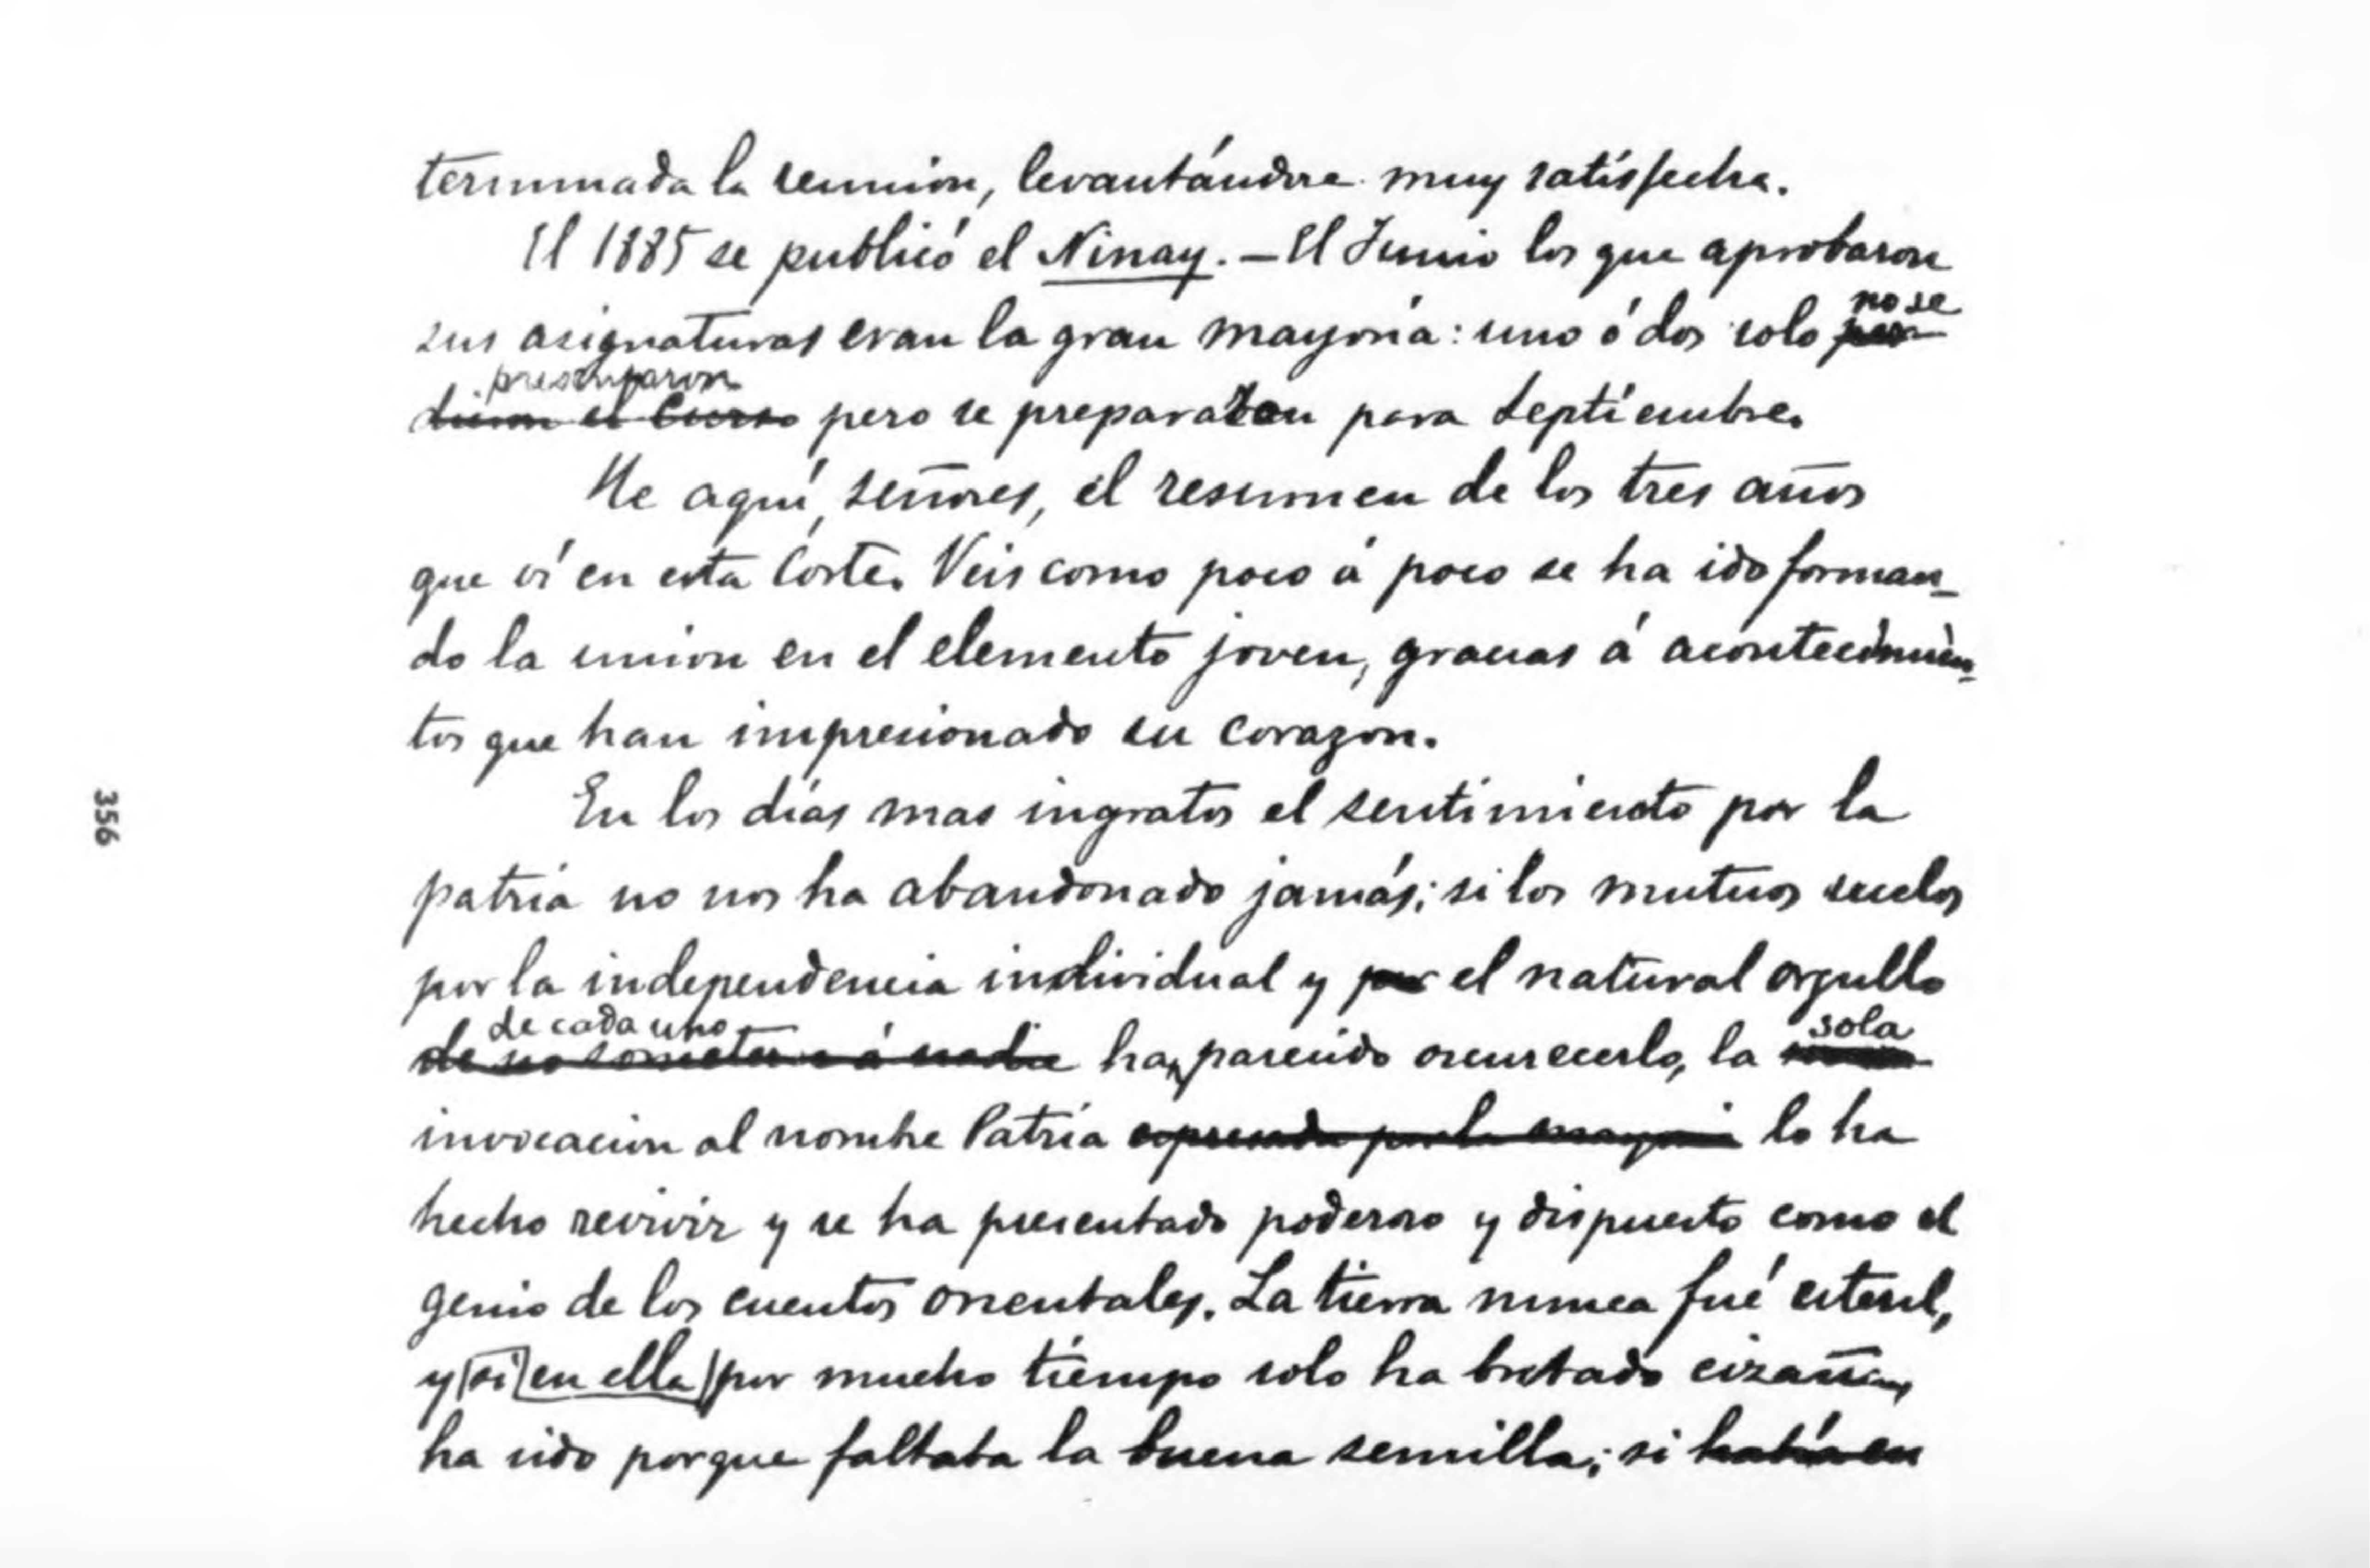 terminada la reunion, levantándose muy satisfecha.
El 1885 se publicó el Ninay. — El Junio los que aprobaron
sus asignaturas eran la gran mayoría: uno ó dos solo per
no se
presentaron
dieron el Curso pero se preparaban para Septiembre.
He aquí, señores, el resumen de los tres años
que ví en esta Corte. Veis como poco á poco se ha ido forman-
do la union en el elemento joven, gracias á acontecimien-
tos que han impresionado su corazon.
En los días mas ingratos el sentimiento por la
patria no nos ha abandonado jamás; si los mutuos
por la independencia individual y por el natural orgullo
de cada uno
de no someterse á nadie han parecido oscurecerlo, la
sola
invocacion al nombre Patria por la lo ha
hecho revivir y se ha presentado poderoso y dispuesto como el
genio de los cuentos orientales. La tierra nunca fué esteril,
y si en ella por mucho tiempo solo ha brotado cizaña,
ha sido porque faltaba la buena semilla; si había en
356